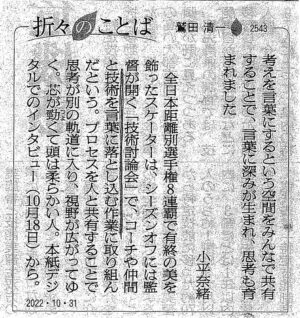 折々のことば
鷲田 清一
2543
考えを言葉にするという空間をみんなで共有
することで、言葉に深みが生まれ、思考も育
まれました
小平奈緒
全日本距離別選手権8連覇で有終の美を
飾ったスケーターは、シーズンオフには監
督が開く「技術討論会」で、コーチや仲間
と技術を言葉に落とし込む作業に取り組ん
だという。プロセスを人と共有することで
思考が別の軌道に入り、視野が広がってゆ
く。芯が勁くて頭は柔らかい人。本紙デジ
タルでのインタビュー（10月18日）から。
2022・10・31